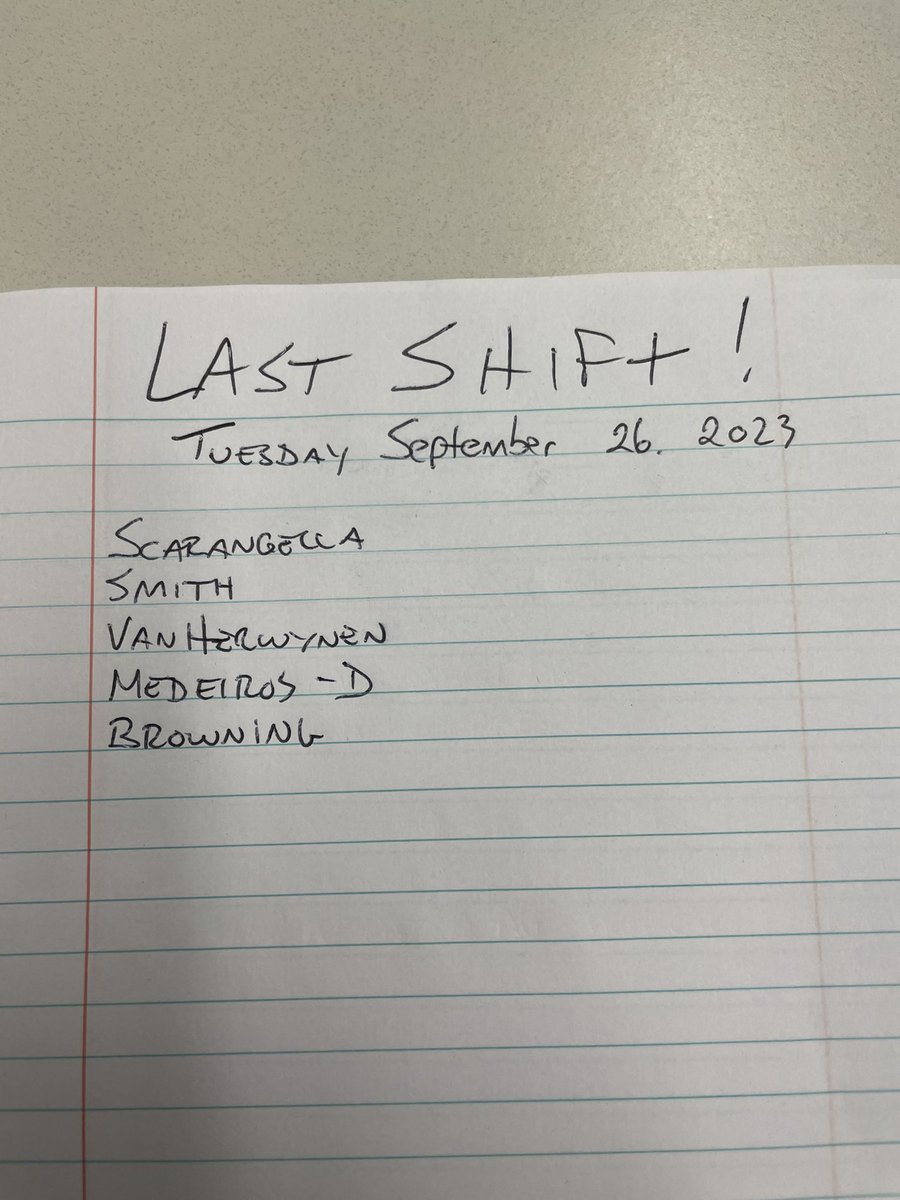 LAST SHIFT!
TUESDAY September 26. 2023
SCARANGELLA
SMITH
VANHERWYNEN
MEDEIROS-D
BROWNING